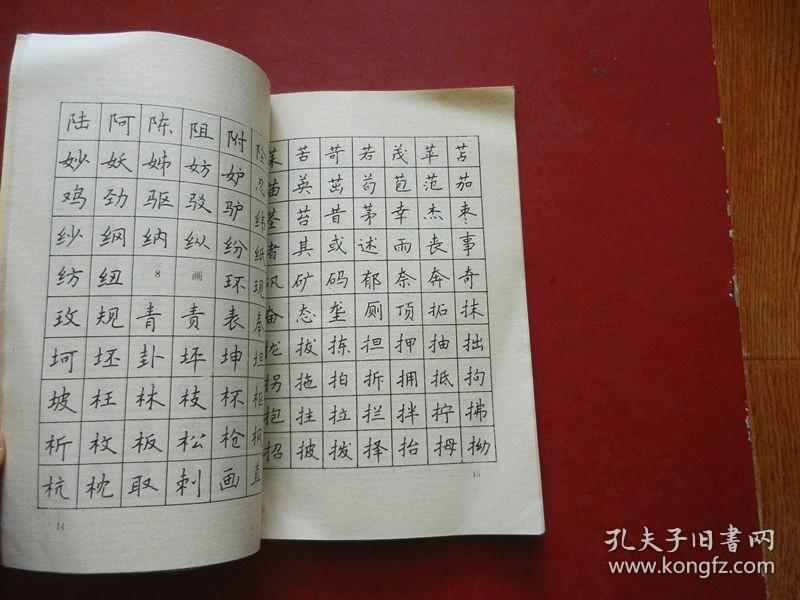 陆 阿 陈 阻 附
妙 妖 姊 妨 妒 忍
鸡 劲 驱 驳 驴 纬
纱 纲 纳 纵 纷 纸
纺 纽 8 画 环 现
玫 规 青 责 表
坷 坯 卦 坪 坤 坦
坡 枉 林 枝 杯 枢
析 枚 板 松 枪 枫
杭 枕 取 刺 画 直
14
苦 苛 若 茂 苹 苫
苗 英 茁 苟 苞 范 茄
茎 苔 昔 茅 幸 杰 枣
者 其 或 述 雨 丧 事
矾 矿 码 郁 奈 奔 奇
奋 态 垄 厕 顶 拓 抹
拢 拔 拣 担 押 抽 拙
拐 拖 拍 拆 拥 抵 拘
抱 拄 拉 拦 拌 拧 拂
招 披 拨 择 抬 拇 拗
15
孔夫子旧书网
www.kongfz.com